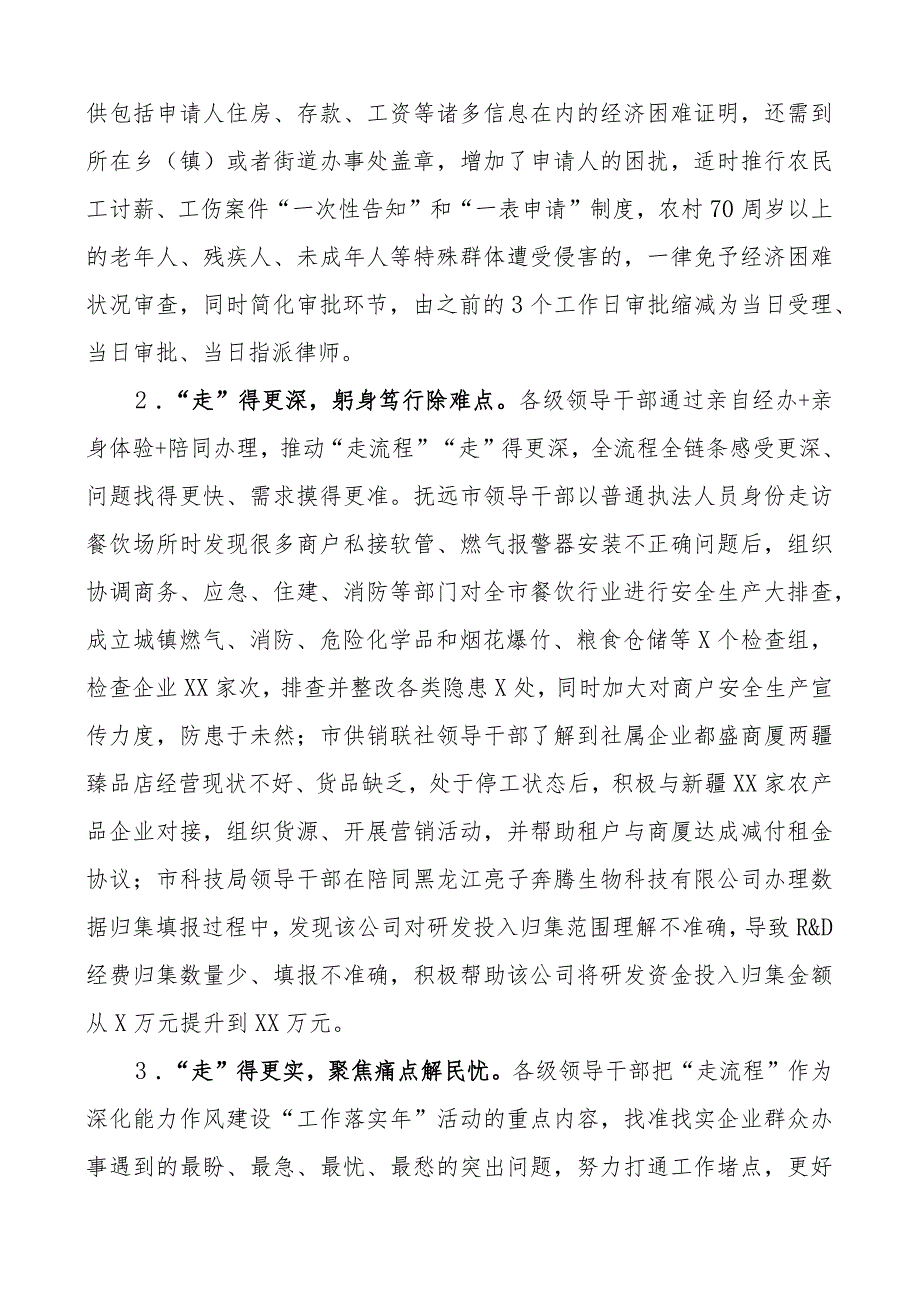 供包括申请人住房、存款、工资等诸多信息在内的经济困难证明，还需到
所在乡（镇）或者街道办事处盖章，增加了申请人的困扰，适时推行农民
工讨薪、工伤案件“一次性告知”和“一表申请”制度，农村 70 周岁以上
的老年人、残疾人、未成年人等特殊群体遭受侵害的，一律免予经济困难
状况审查，同时简化审批环节，由之前的 3 个工作日审批缩减为当日受理、
当日审批、当日指派律师。
2．“走”得更深，躬身笃行除难点。各级领导干部通过亲自经办+亲
身体验+陪同办理，推动“走流程”“走”得更深，全流程全链条感受更深、
问题找得更快、需求摸得更准。抚远市领导干部以普通执法人员身份走访
餐饮场所时发现很多商户私接软管、燃气报警器安装不正确问题后，组织
协调商务、应急、住建、消防等部门对全市餐饮行业进行安全生产大排查，
成立城镇燃气、消防、危险化学品和烟花爆竹、粮食仓储等 X 个检查组，
检查企业 XX 家次，排查并整改各类隐患 X 处，同时加大对商户安全生产宣
传力度，防患于未然；市供销联社领导干部了解到社属企业都盛商厦两疆
臻品店经营现状不好、货品缺乏，处于停工状态后，积极与新疆 XX 家农产
品企业对接，组织货源、开展营销活动，并帮助租户与商厦达成减付租金
协议；市科技局领导干部在陪同黑龙江亮子奔腾生物科技有限公司办理数
据归集填报过程中，发现该公司对研发投入归集范围理解不准确，导致 R&D
经费归集数量少、填报不准确，积极帮助该公司将研发资金投入归集金额
从 X 万元提升到 XX 万元。
3．“走”得更实，聚焦痛点解民忧。各级领导干部把“走流程”作为
深化能力作风建设“工作落实年”活动的重点内容，找准找实企业群众办
事遇到的最盼、最急、最忧、最愁的突出问题，努力打通工作堵点，更好